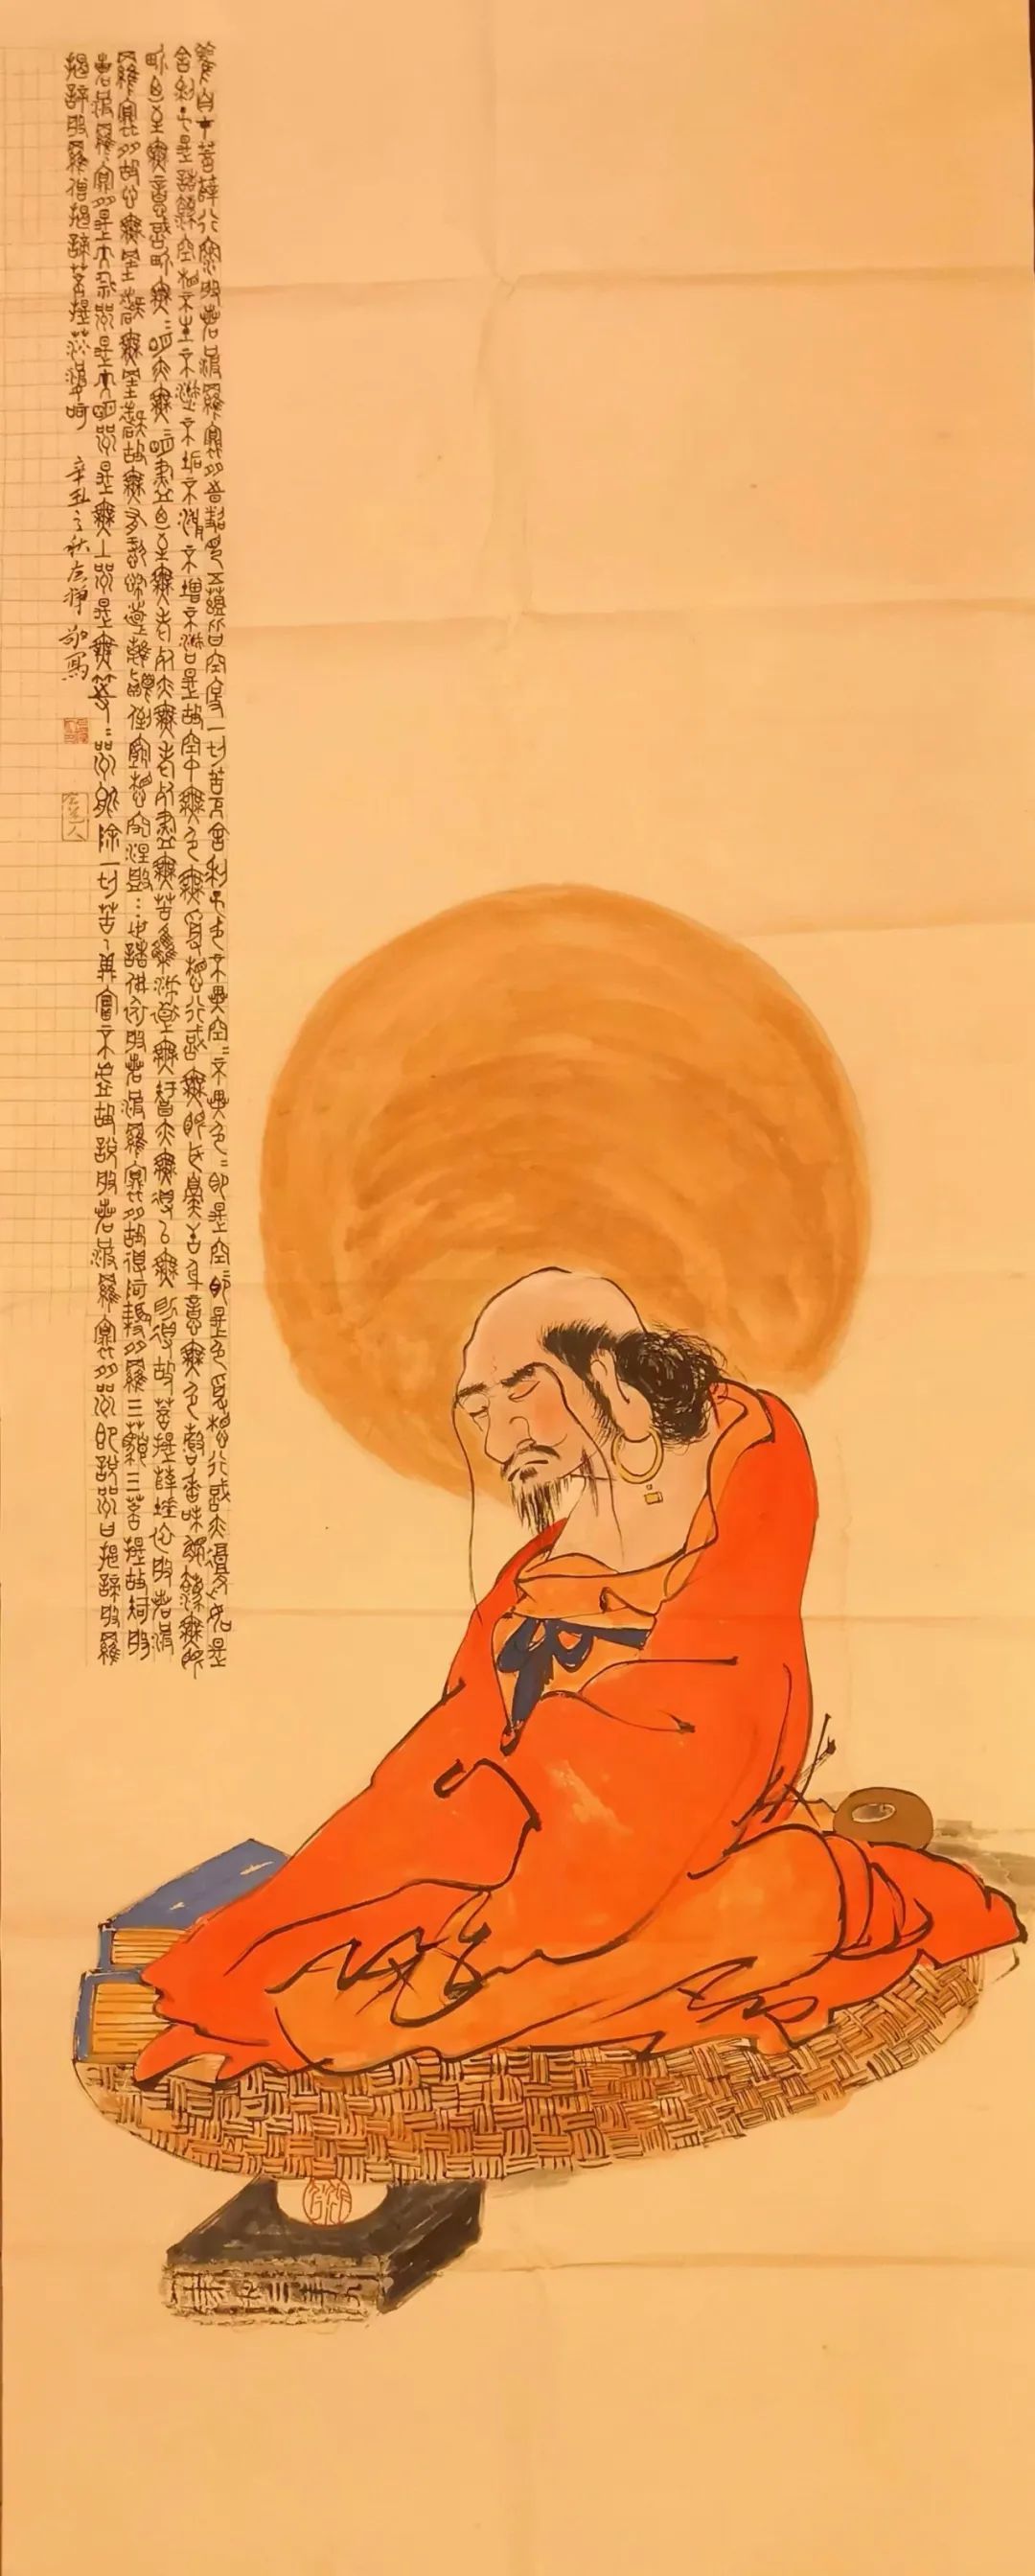 觀自在菩薩行深般若波羅蜜多時照見五蘊皆空度一切苦厄舍利子色不異空〻不異色〻即是空〻即是色受想行識亦復如是
舍利子是諸法空相不生不滅不垢不淨不增不減是故空中無色無受想行識無眼耳鼻舌身意無色聲香味觸法無眼
界乃至無意識界無〻明亦無〻明盡乃至無老死亦無老死盡無苦集滅道無智亦無得以無所得故菩提薩埵依般若波
羅蜜多故心無罣礙無罣礙故無有恐怖遠離顛倒夢想究竟涅槃三世諸佛依般若波羅蜜多故得阿耨多羅三藐三菩提故知般
若波羅蜜多是大神咒是大明咒是無上咒是無等〻咒能除一切苦真實不虛故說般若波羅蜜多咒即說咒曰揭諦般羅
揭諦般羅僧揭諦菩提薩婆訶 辛丑之秋 敬寫